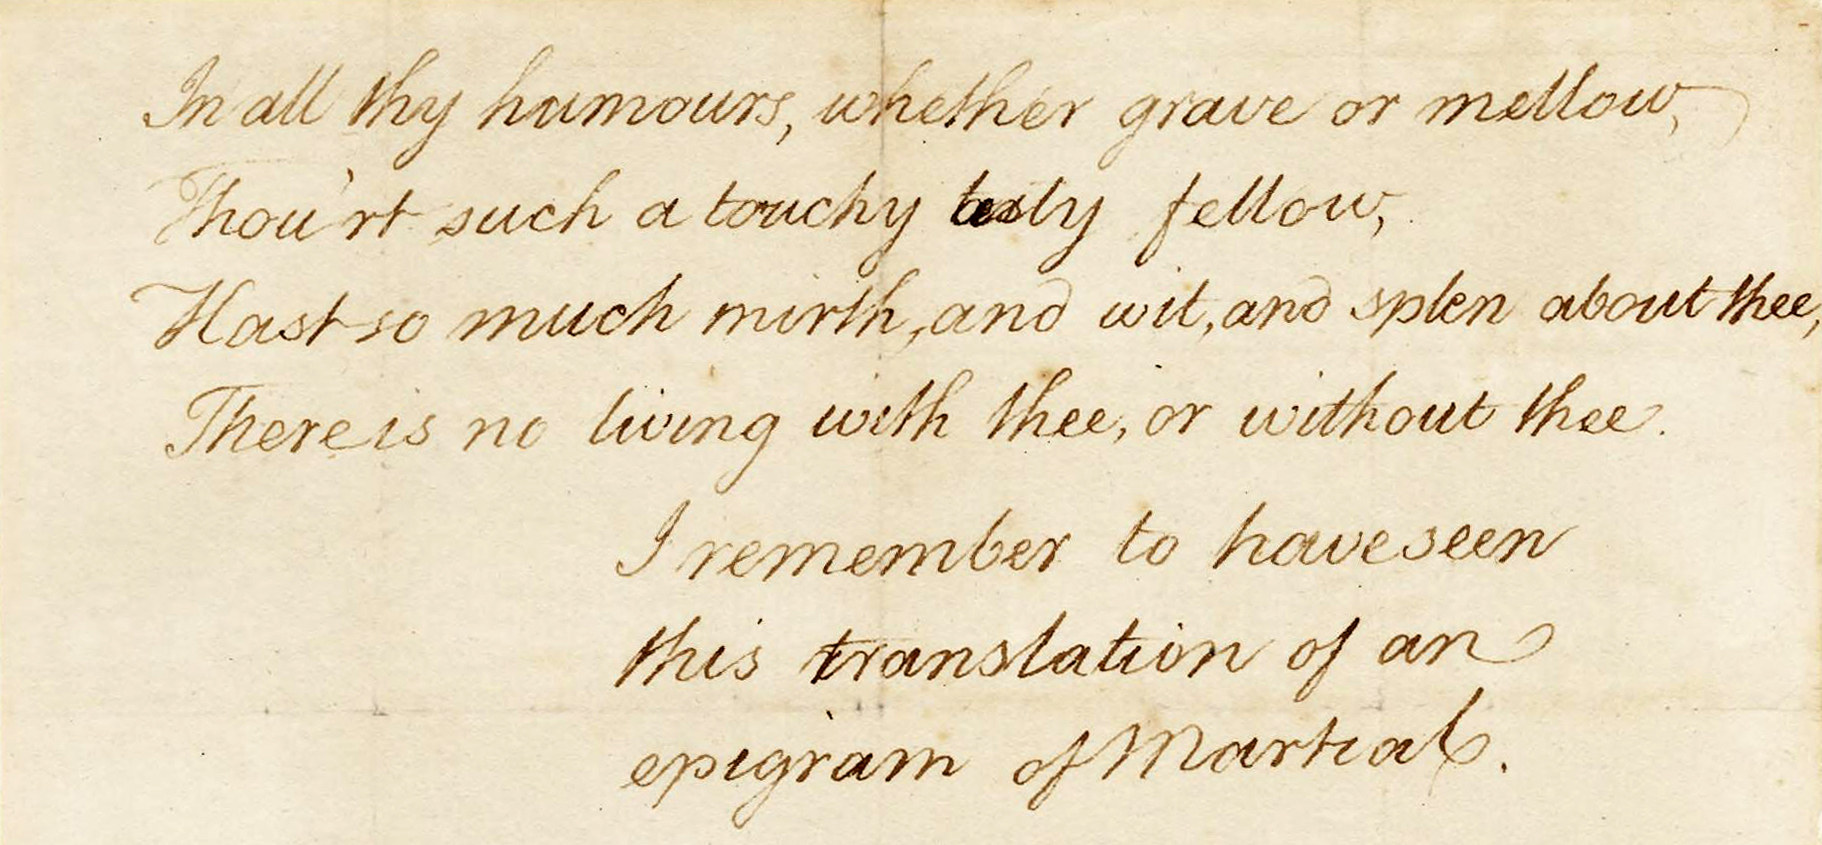 In all thy humours, whether grave or mellow,
Thou'rt such a touchy testy fellow,
Hast so much mirth, and wit, and splen about thee,
There is no living with thee, or without thee.
I remember to have seen
this translation of an
epigram of Martial.